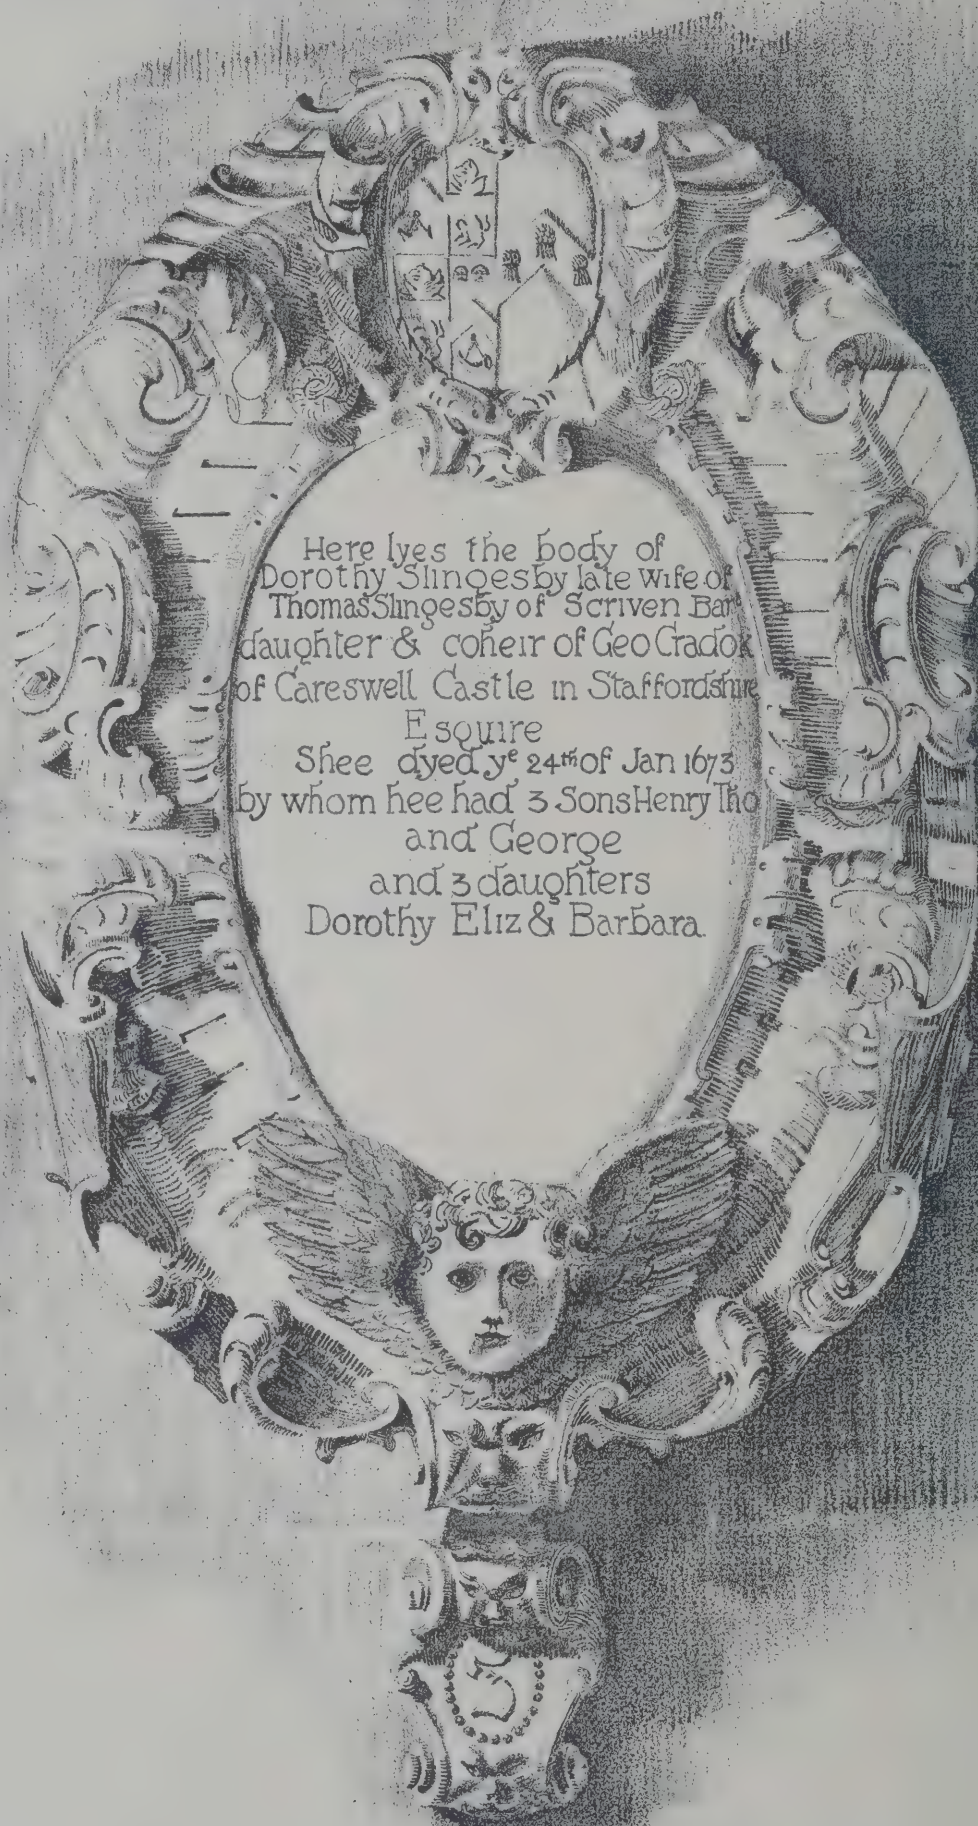 Here lyes the body of
Dorothy Slingesby late Wife of
Thomas Slingesby of Scriven Barᵗ
daughter & coheir of Geo Cradok
of Careswell Castle in Staffordshire
Esquire
Shee dyed yᵉ 24ᵗʰ of Jan 1673
by whom hee had 3 Sons Henry Tho
and George
and 3 daughters
Dorothy Eliz & Barbara.